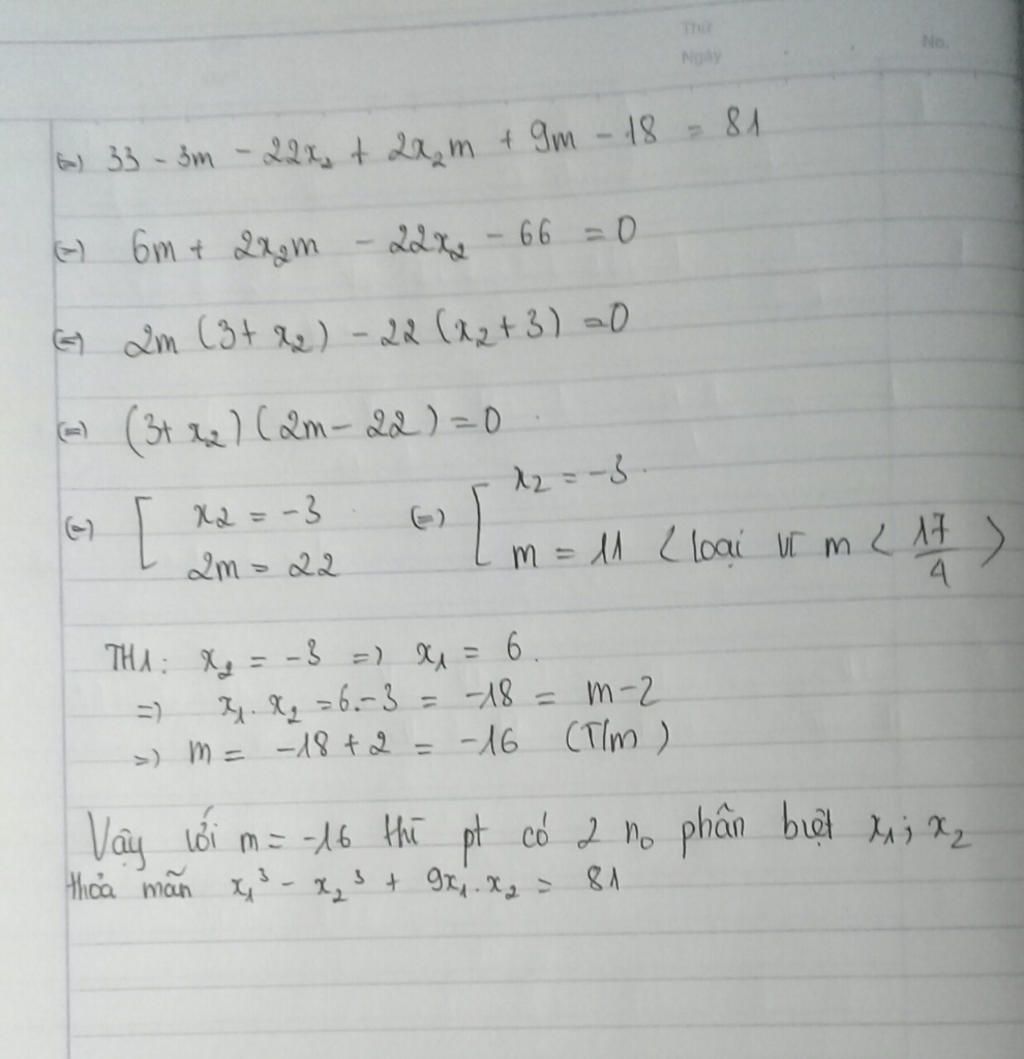 Thứ
Ngày
No.
(=) 33 - 3m - 22x₂ + 2x₂m + 9m - 18 = 81
(=) 6m + 2x₂m - 22x₂ - 66 = 0
(=) 2m (3+ x₂) - 22 (x₂+3) =0
(=) (3+ x₂) (2m - 22) = 0
(=) [ x₂ = -3 (=) [ x₂ = -3
2m = 22 m = 11 < loại vì m < 17/4 >
TH1: x₂ = -3 => x₁ = 6.
=> x₁. x₂ = 6.-3 = -18 = m-2
=> m = -18 + 2 = -16 (T/m)
Vậy với m = -16 thì pt có 2 n₀ phân biệt x₁; x₂
thỏa mãn x₁³ - x₂³ + 9x₁.x₂ = 81